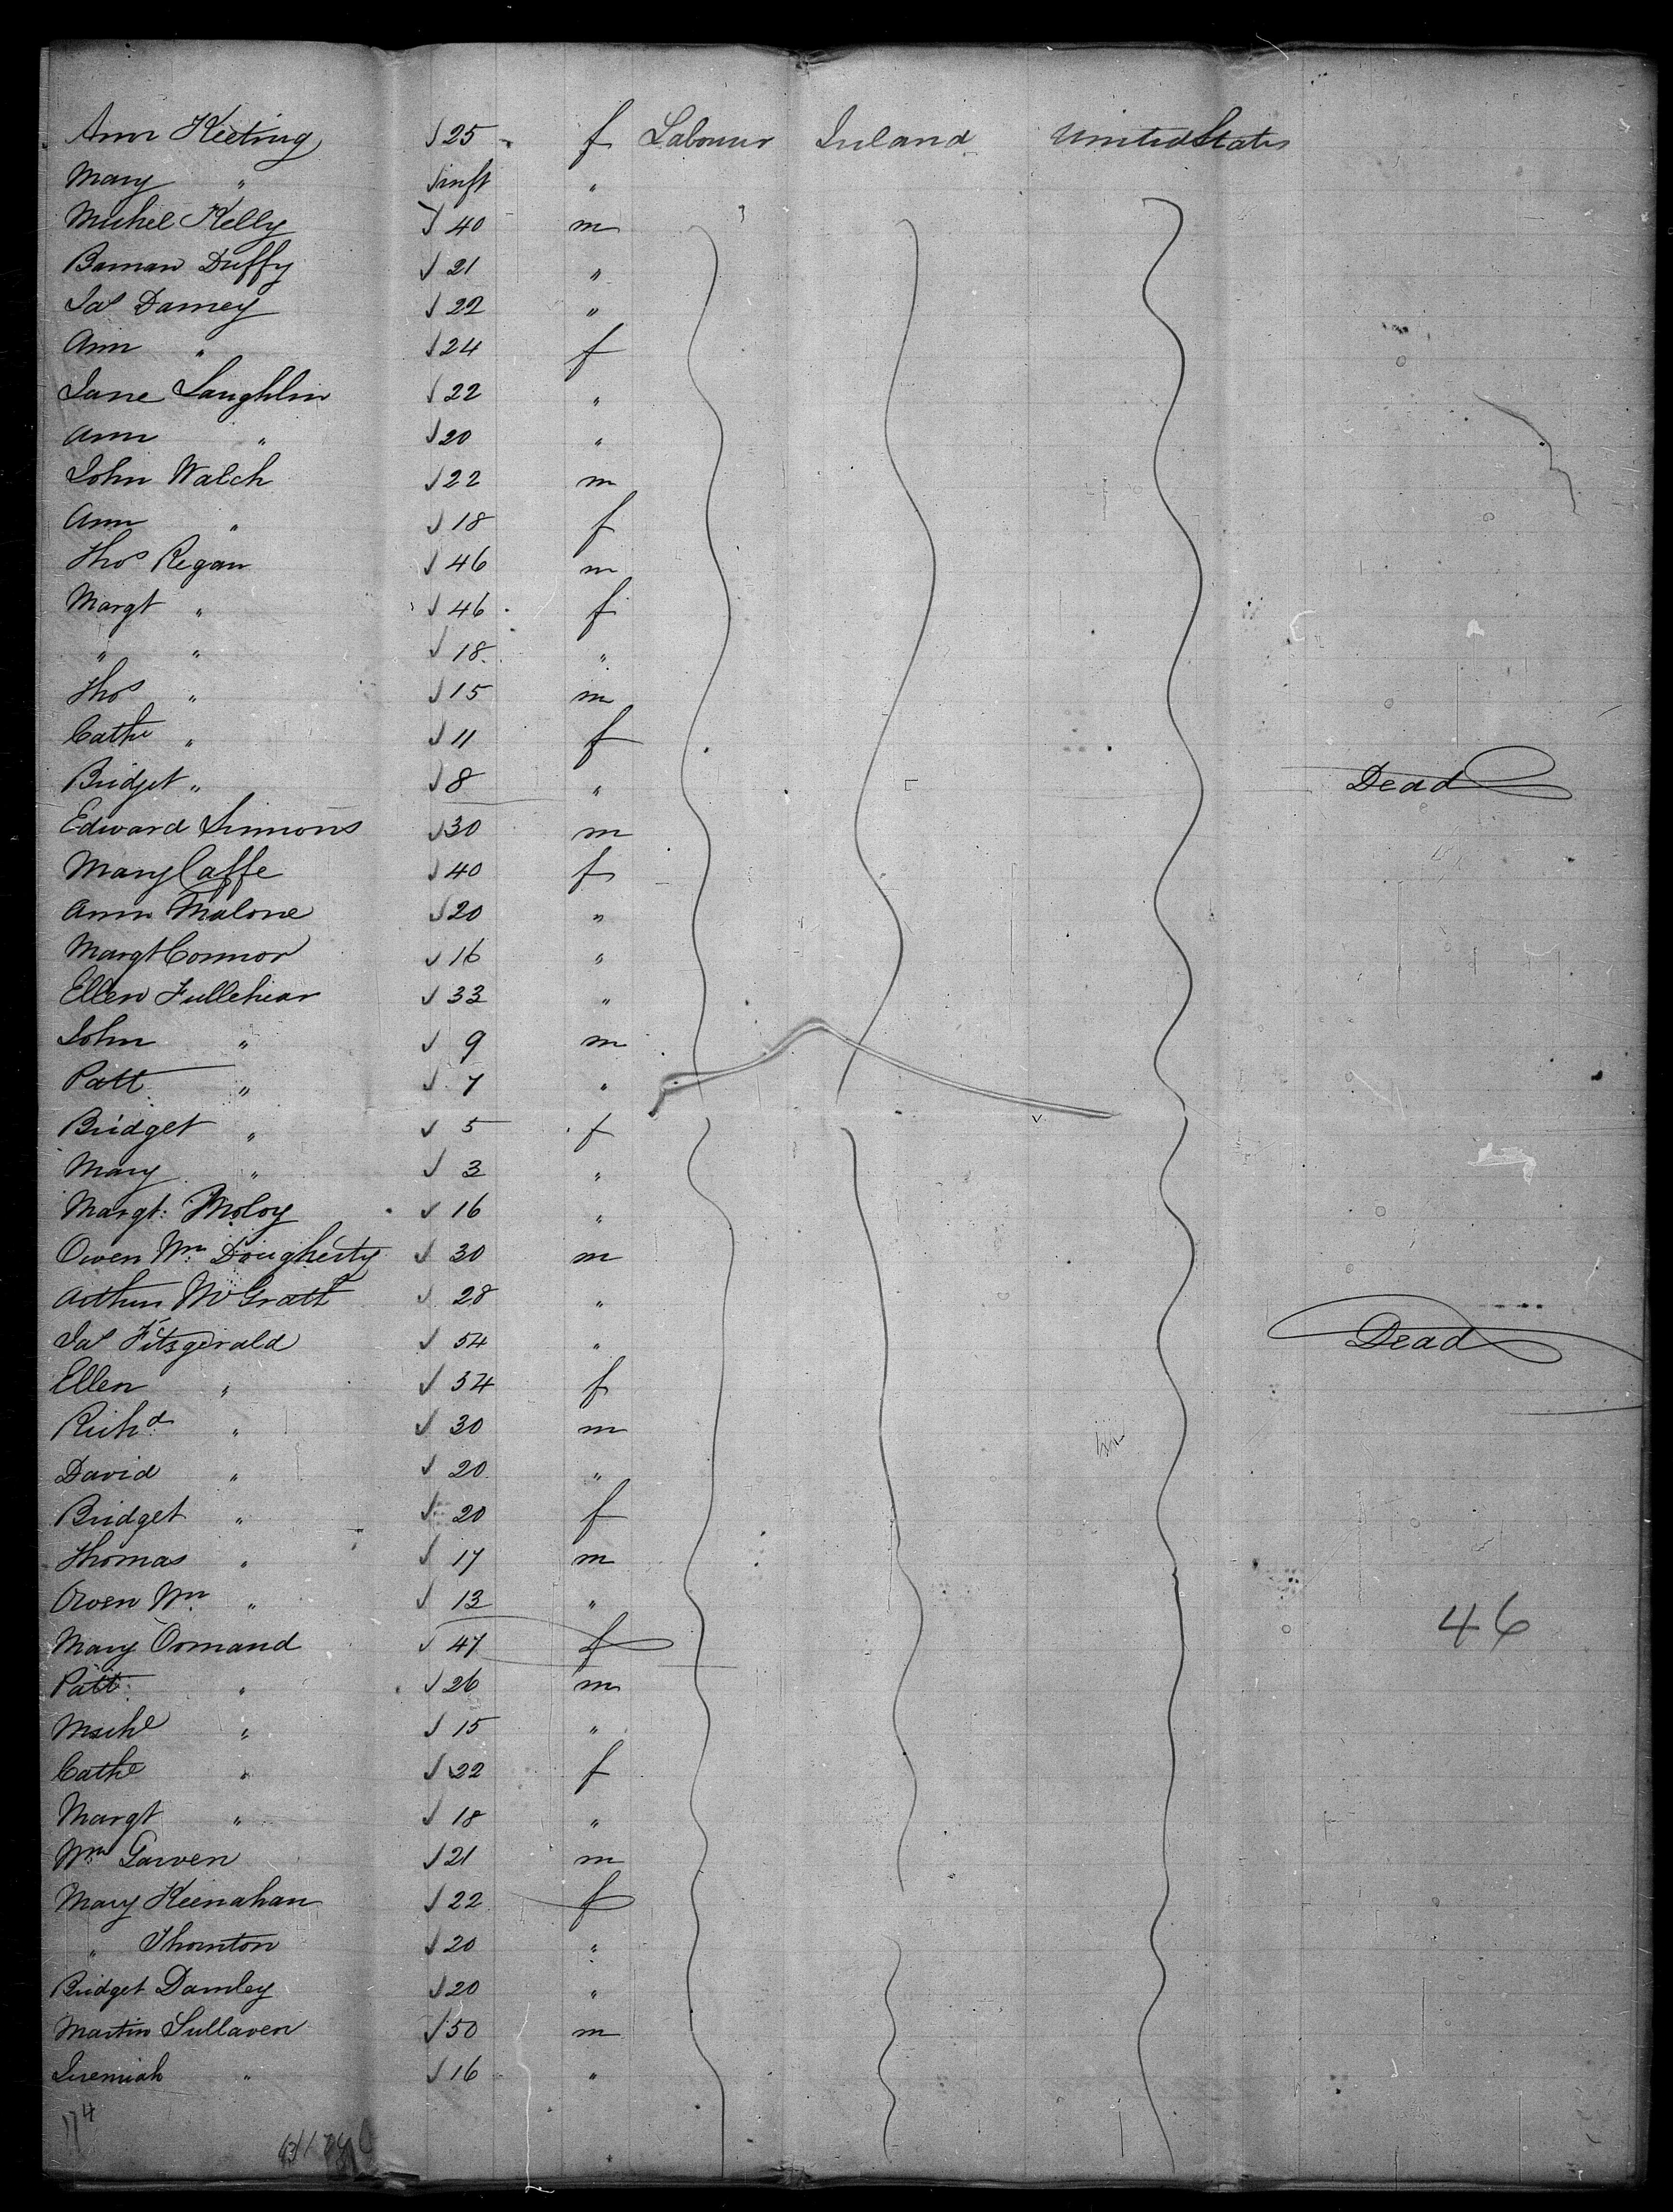 Ann Keeting √ 25 f Labourer Ireland United States
Mary " √ inft "
Michel Kelly √ 40 m
Barnan Duffy √ 21 "
Jas Darney √ 22 "
Ann " √ 24 f
Jane Laughlin √ 22 "
Ann " √ 20 "
John Walch √ 22 m
Ann " √ 18 f
Thos Regan √ 46 m
Margt " √ 46 f
" " √ 18 "
Thos " √ 15 m
Cathe " √ 11 f
Bridget " √ 8 " Dead
Edward Simmons √ 30 m
Mary Caffe √ 40 f
Ann Malone √ 20 "
Margt Connor √ 16 "
Ellen Fullehear √ 33 "
John " √ 9 m
Patt " √ 7 "
Bridget " √ 5 f
Mary " √ 3 "
Margt: Moloy √ 16 "
Owen Wm Dougherty √ 30 m
Arthur McGratt √ 28 "
Jas Fitsgerald √ 54 " Dead
Ellen " √ 54 f
Richd " √ 30 m
David " √ 20 "
Bridget " √ 20 f
Thomas " √ 17 m
Owen Wm " √ 13 "
Mary Ormand √ 47 f 46
Patt " √ 26 m
Michl " √ 15 "
Cathe " √ 22 f
Margt " √ 18 "
Wm Garven √ 21 m
Mary Keenahan √ 22 f
" Thornton √ 20 "
Bridget Damley √ 20 "
Martin Sullaven √ 50 m
Jeremiah " √ 16 "